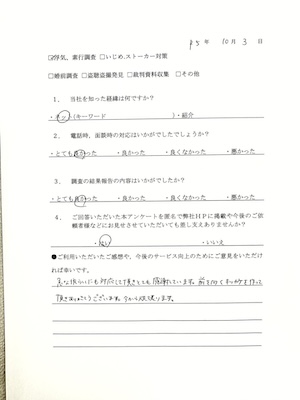 R5 年 10月 3 日
☑浮気、素行調査 □いじめ.ストーカー対策
□婚前調査 □盗聴盗撮発見 □裁判資料収集 □その他
1． 当社を知った経緯は何ですか？
・ネット(キーワード )・紹介
2． 電話時、面談時の対応はいかがでしたでしょうか？
・とても良かった ・良かった ・良くなかった ・悪かった
3． 調査の結果報告の内容はいかがでしたか？
・とても良かった ・良かった ・良くなかった ・悪かった
4． ご回答いただいた本アンケートを匿名で弊社HPに掲載や今後のご依
頼者様などにお見せさせていただいても差し支えありませんか？
・はい ・いいえ
●ご利用いただいたご感想や、今後のサービス向上のためにご意見をいただけ
れば幸いです。
急な依頼にも対応して頂きとても感謝しています。前を向くキッカケを作って
頂きありがとうございます。今から頑張ります。